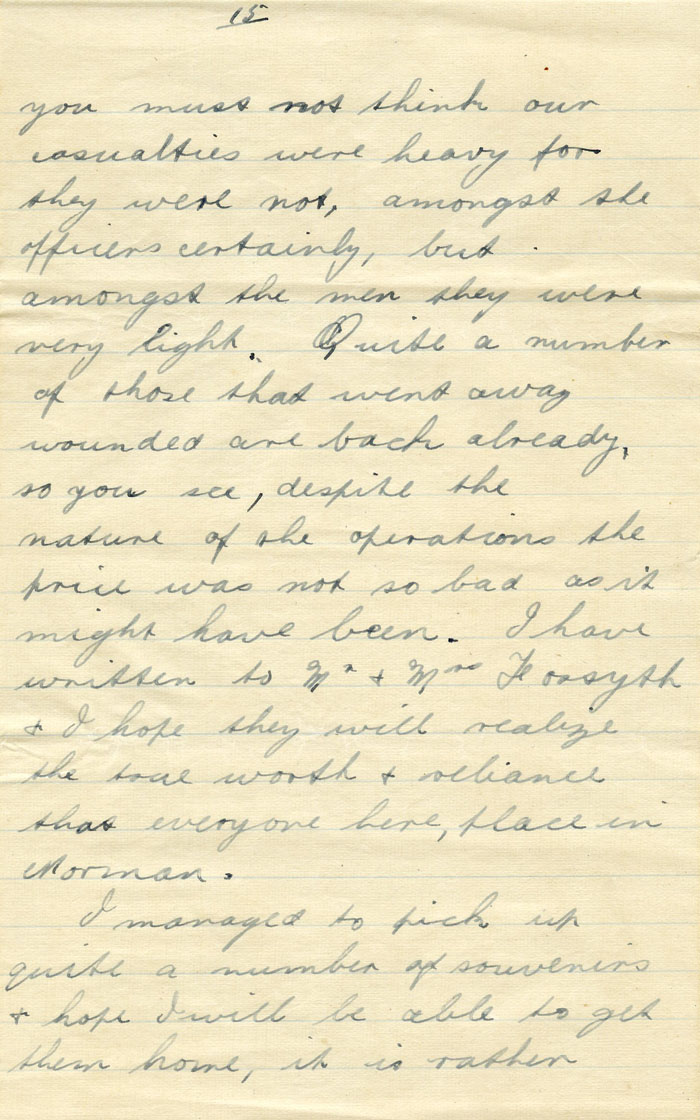 15
you must not think our
casualties were heavy for
they were not, amongst the
officers certainly, but
amongst the men they were
very light. Quite a number
of those that went away
wounded are back already,
so you see, despite the
nature of the operations the
price was not so bad as it
might have been. I have
written to Mr & Mrs Forsyth
& I hope they will realize
the true worth & reliance
that everyone here, place in
Norman.
I managed to pick up
quite a number of souvenirs
& hope I will be able to get
them home, it is rather